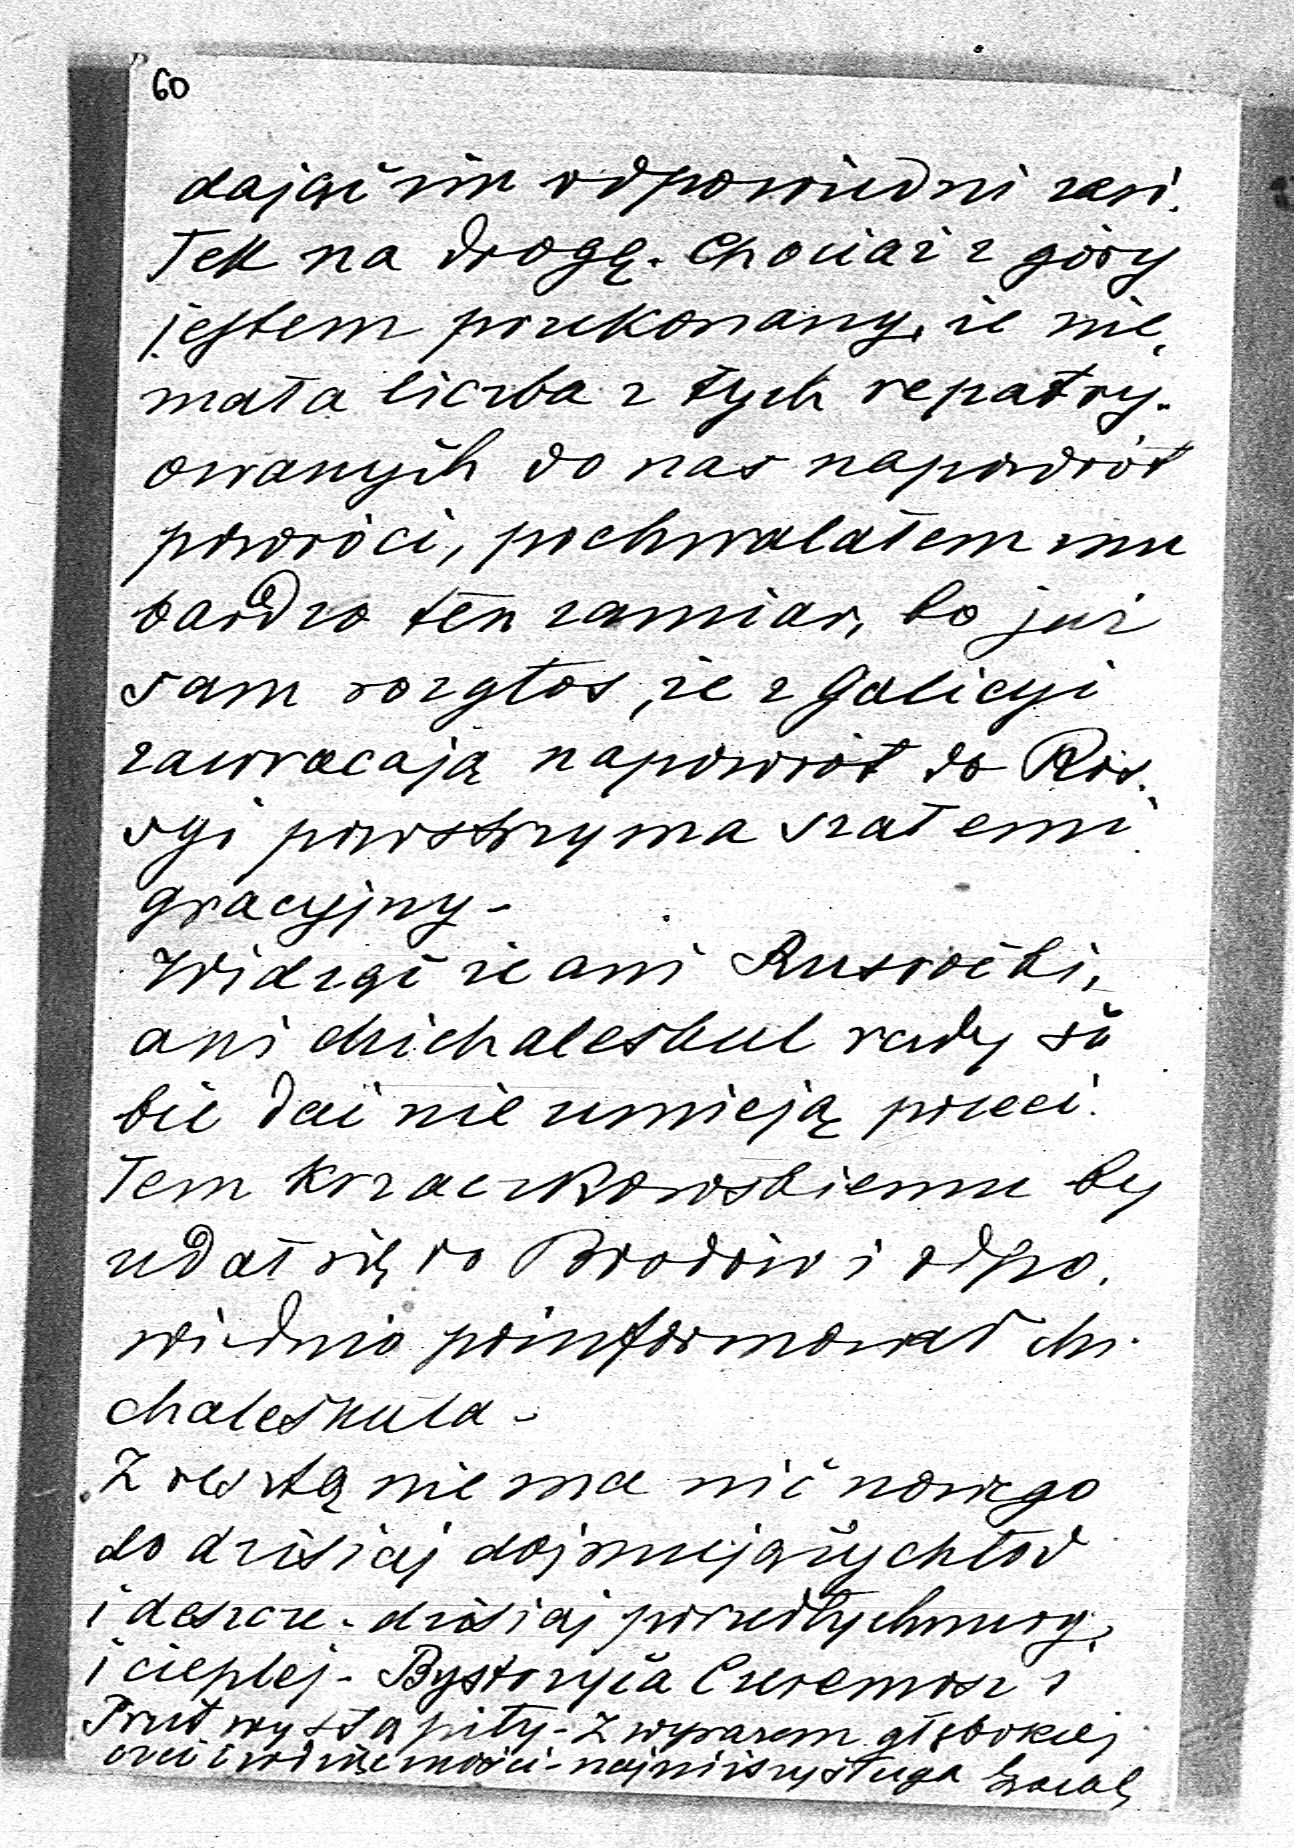 60
dając im odpowiedni zasi.
łek na drogę. Chociaż z góry
jestem przekonany, że nie,
mała liczba z tych repatry.
owanych do nas napowrót
powróci, pochwalałem mu
bardzo ten zamiar, bo już
sam rozgłos, że z Galicyi
zawracają napowrót do Ros.
syi powstrzyma szał emi
gracyjny -
Widząc że ani Rusocki,
ani Michaleskul rady so
bie dać nie umieją poleci.
łem Krzaczkowskiemu by
udał się do Brodów i odpo.
wiednio poinformował Mi.
chaleskula -
Zresztą nie ma nic nowego
do dzisiaj dojmujący chłód
i deszcze - dzisiaj przeszły chmury,
i cieplej - Bystrzyca Czeremosz i
Prut wystąpiły - Z wyrazem głębokiej
czci i wdzięczności - najniższy sługa